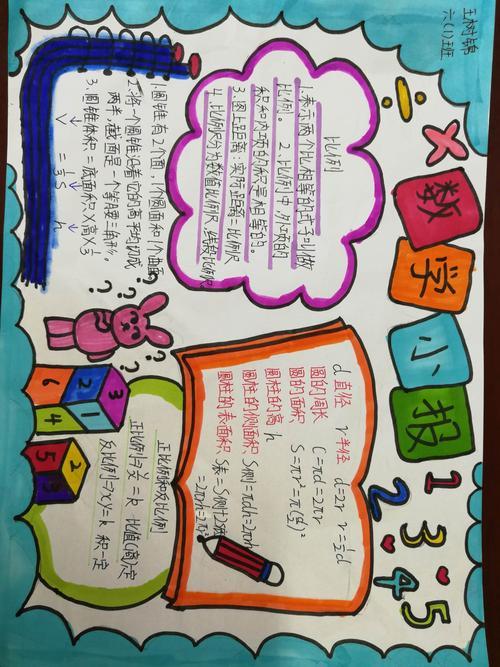 王树锦
六(1)班
数学小报
1 2 3 4 5
比例
1.表示两个比相等的式子叫做
比例。 2.比例中,外项的
积和内项的积是相等的。
3.图上距离:实际距离=比例尺
4.比例尺分为数值比例尺、线段比例尺
1.圆锥有2个面,1个圆面和1个曲面
2.将一个圆锥沿着它的高平均切成
两半,截面是一个等腰三角形。
3.圆锥体积=底面积×高×1/3
V = 1/3 S h
d直径 r半径 d=2r r=1/2d
圆的周长 C=πd=2πr
圆的面积 S=πr²=π(d/2)²
圆柱的高 h
圆柱的侧面积 S侧=πdh=2πrh
圆柱的表面积 S表=S侧+2
=2πrh+2πr²
正比例和反比例
正比例→y/x=k 比值(商)一定
反比例→xy=k 积一定
? ? ? ? ?
3 2 1 6 4
2 5 3